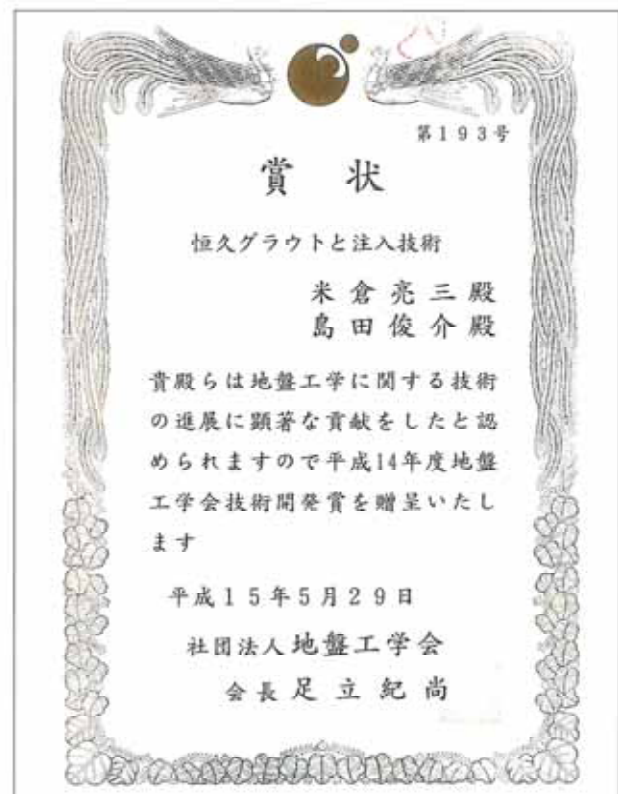 第193号
賞状
恒久グラウトと注入技術
米倉亮三殿
島田俊介殿
貴殿らは地盤工学に関する技術
の進展に顕著な貢献をしたと認
められますので平成14年度地盤
工学会技術開発賞を贈呈いたし
ます
平成15年5月29日
社団法人地盤工学会
会長足立紀尚